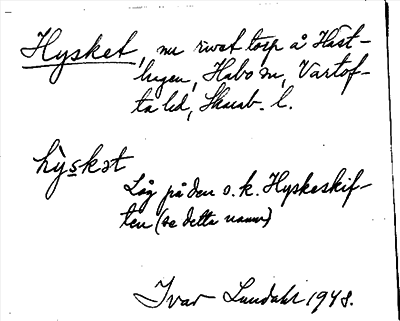 Hysket, nu rivet torp å Häst-
hagen, Habo sn, Vartof-
ta hd, Skarab. l.
hỳskət
Låg på den s.k. Hyskeskif-
ten (se detta namn)
Ivar Lundahl 1948.